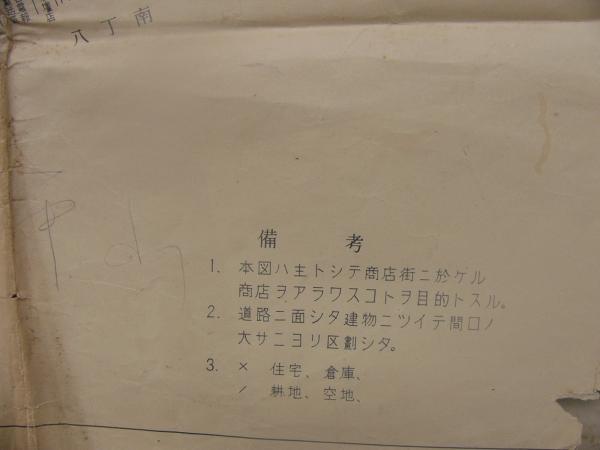 八丁南
備考
1. 本図ハ主トシテ商店街ニ於ケル
商店ヲアラワスコトヲ目的トスル。
2. 道路ニ面シタ建物ニツイテ間口ノ
大サニヨリ区劃シタ。
3. × 住宅、倉庫、
／ 耕地、空地、